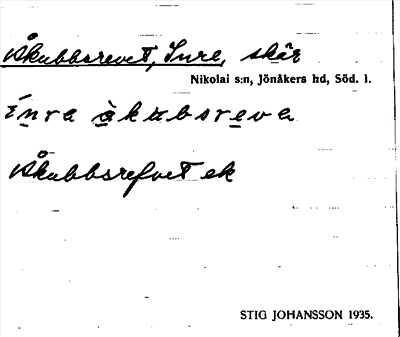 Åkubbsrevet, Inre, skär
Nikolai s:n, Jönåkers hd, Söd. l.
ı́nra ὰkubsreva
Åkubbsrefvet ek
STIG JOHANSSON 1935.